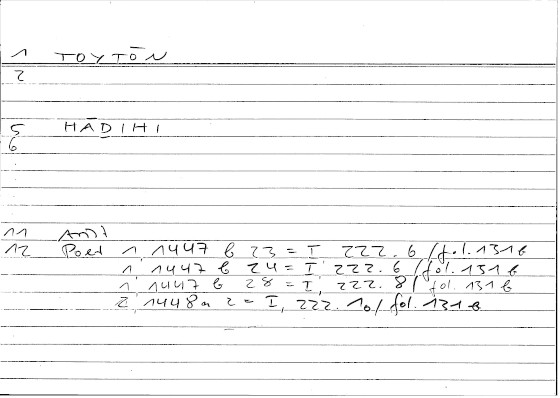 1 TOYTŌN
2
5 HĀḎIHI
6
11
12 Poet 1, 1447 b 23 = I, 222.6 / fol. 131 b
1, 1447 b 24 = I, 222.6 / fol. 131 b
1, 1447 b 28 = I, 222.8 / fol. 131 b
2, 1448 a 2 = I, 222.10 / fol. 131 b